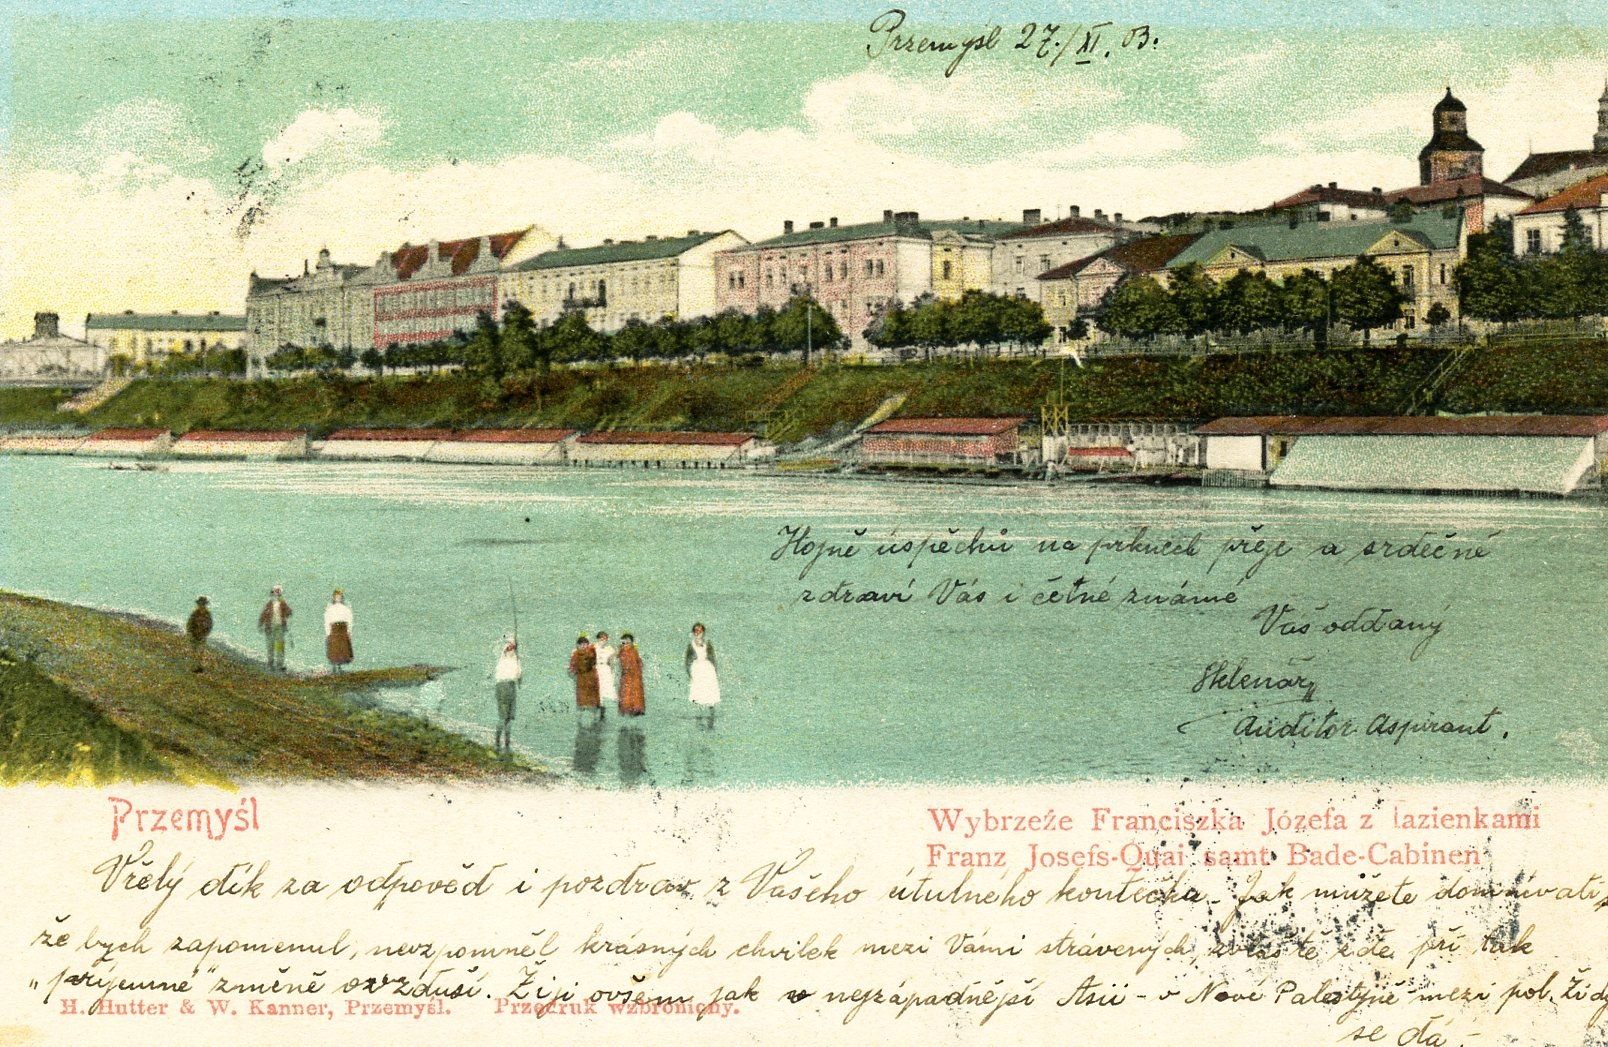 Przemyśl 27./XI. 03.
Hojně úspěchů na prknech přeje a srdečně
zdraví Vás i četné známé
Váš oddaný
Sklenář
Auditor Aspirant.
Przemyśl
Wybrzeże Franciszka Józefa z łazienkami
Franz Josefs-Quai samt Bade-Cabinen
Vřelý dík za odpověd i pozdrav z Vašeho útulného koutečka. Jak můžete domnívati,
že bych zapomenul, nevzpomněl krásných chvilek mezi Vámi strávených, zvláště zde při tak
„příjemné" změně ovzduší. Žiji ovšem jak v nejzápadnější Asii - v Nové Palestýně mezi pol. Židy
se dá -
H. Hutter & W. Kanner, Przemyśl. Przedruk wzbroniony.